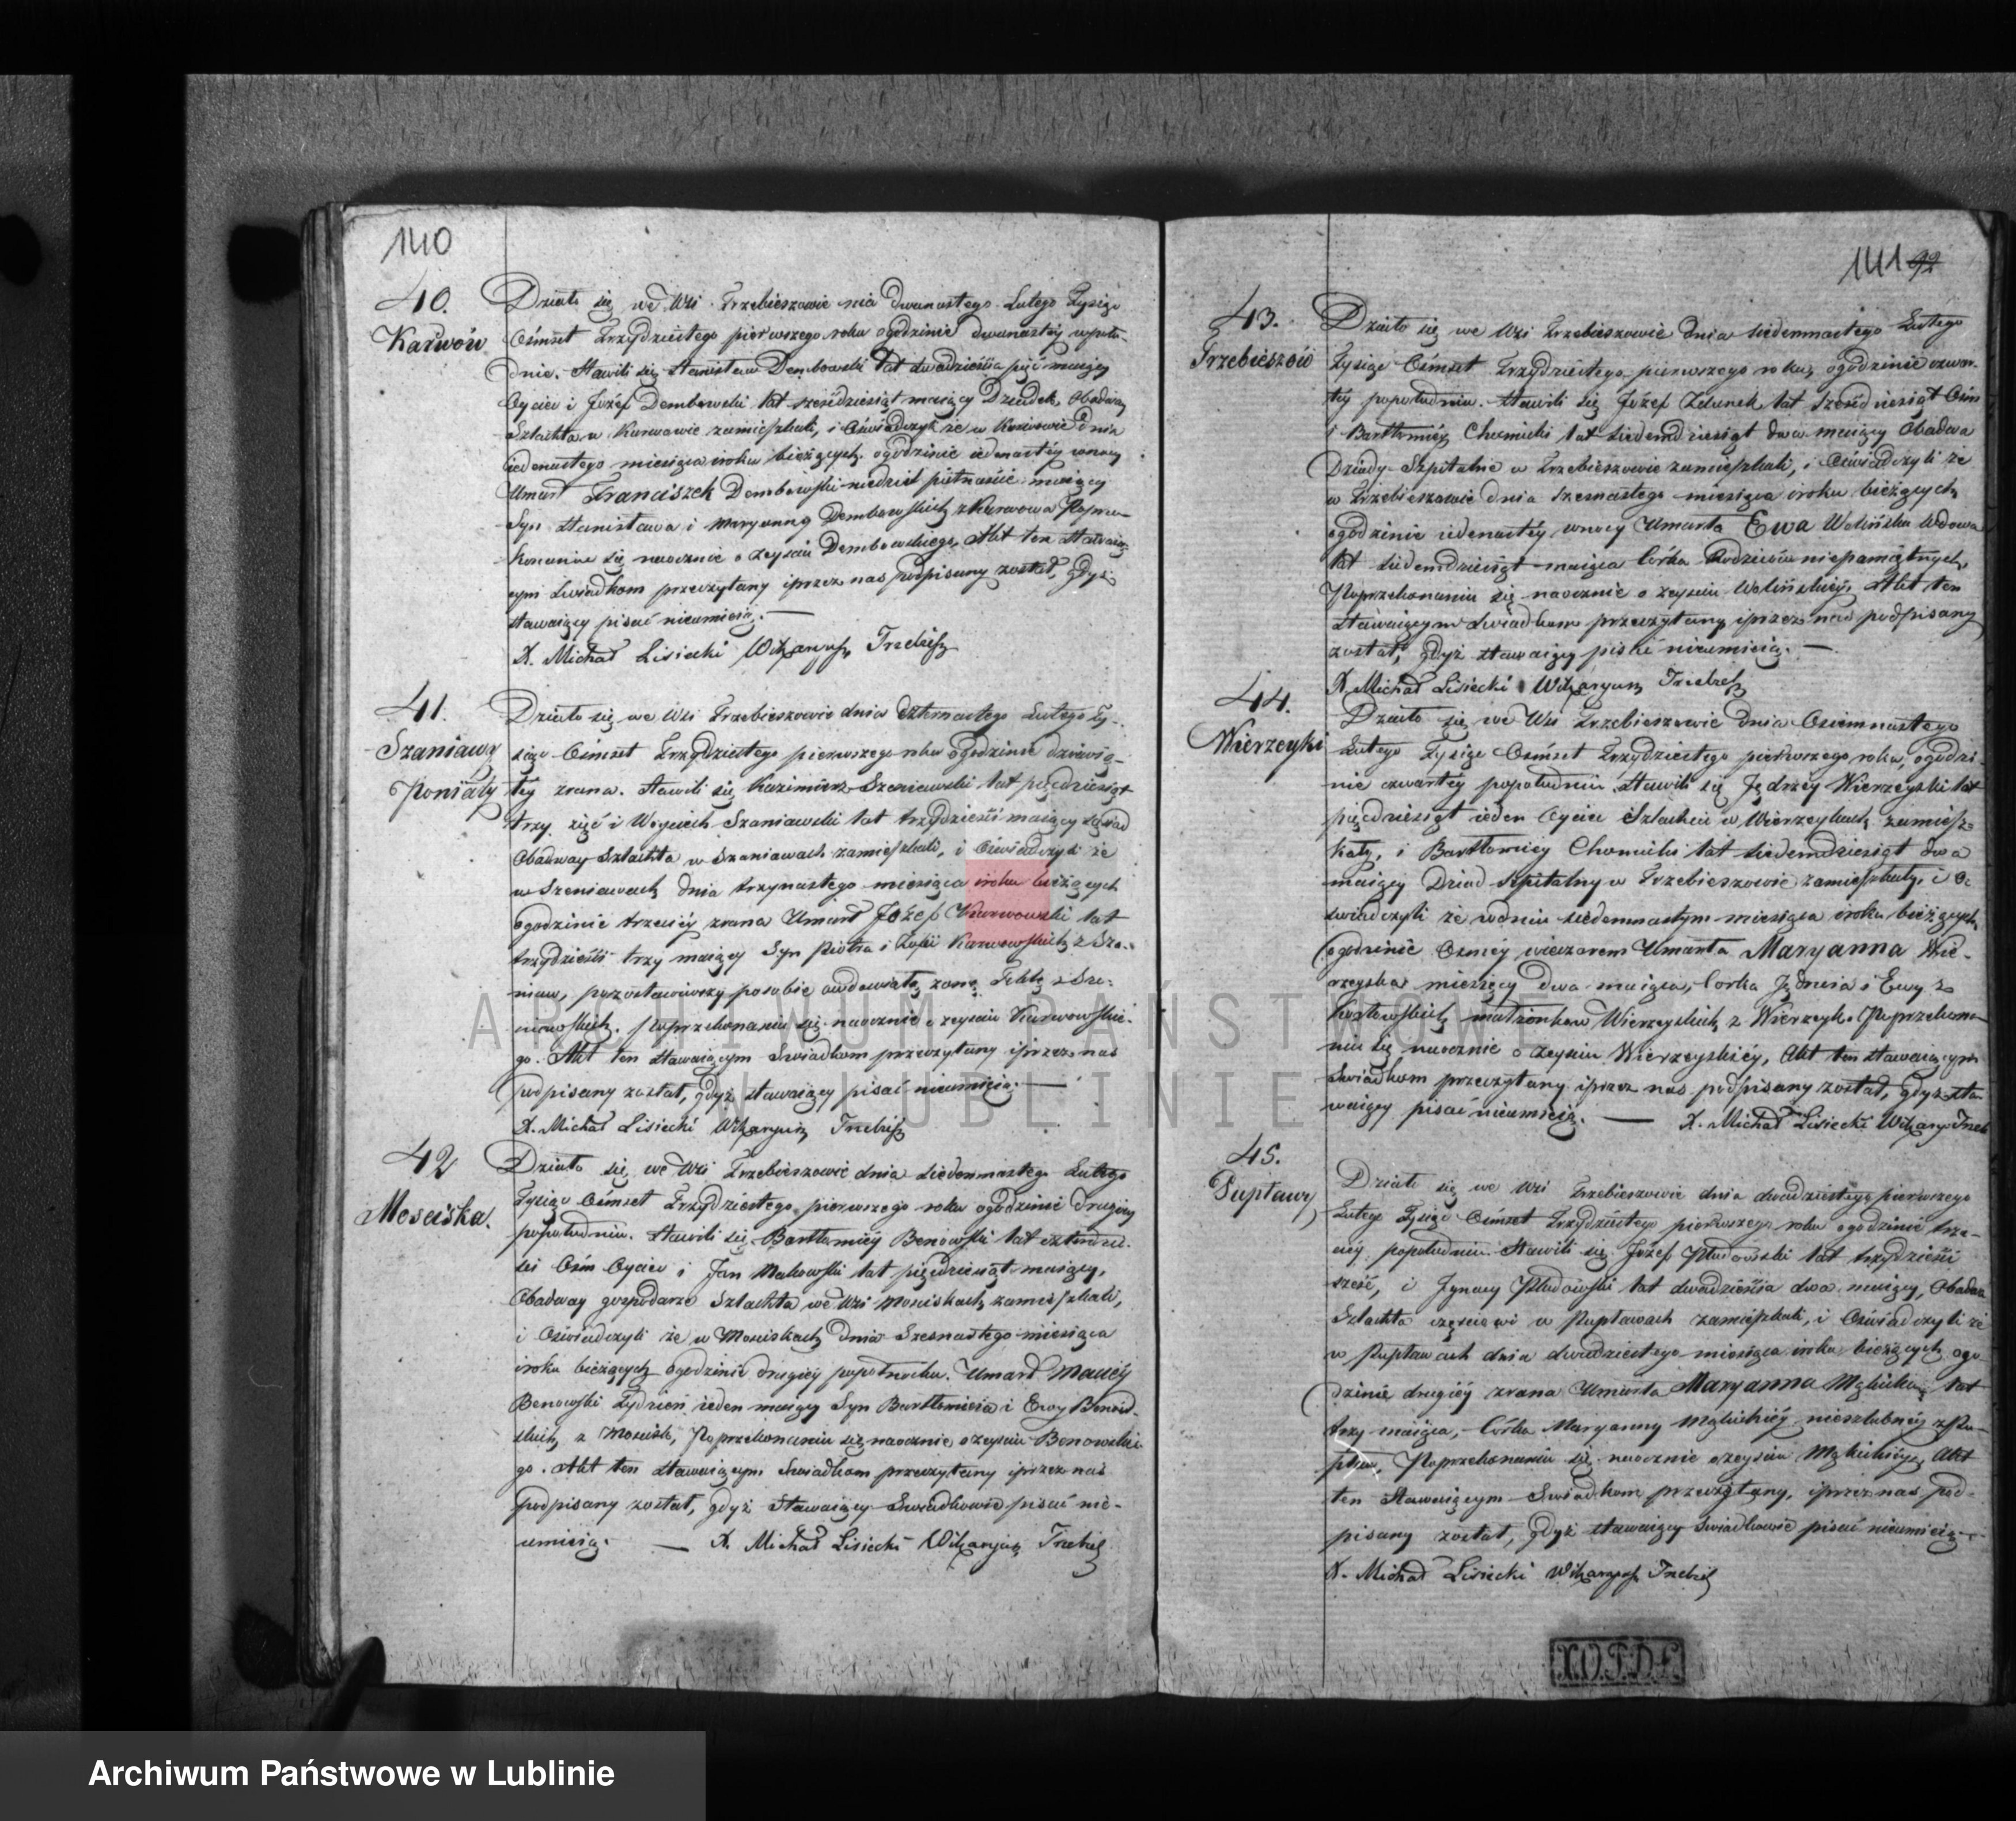 140
40.
Karwów
Działo się we Wsi Trzebieszowie nia dwunastego Lutego Tysiąc
Ośmset Trzydziestego pierwszego roku ogodzinie dwunastéy wpołu-
dnie. Stawili się Stanisław Dembowski lat dwadzieścia pięć maiący
Oyciec i Józef Dembowski lat sześdziesiąt maiący Dziadek, Obadway
Szlachta w Karwowie zamieszkali, i Oświadczyli że w Karwowie dnia
iedenastego miesiąca iroku bieżących ogodzinie iedenastéy wnocy
Umarł Franciszek Dembowski niedziel piętnaście maiący
Syn Stanisława i Maryanny Dembowskich zKarwowa Poprze-
konaniu się naocznie o zeyściu Dembowskiego, Akt ten Stawaią-
cym Świadkom przeczytany iprzez nas podpisany został, gdyż
stawaiący pisać nieumieią.
X. Michał Lisiecki Wikaryusz Trzebiesz
41.
Szaniawy
Poniaty
Działo się we Wsi Trzebieszowie dnia czternastego Lutego Ty-
siąc Ośmset Trzydziestego pierwszego roku ogodzinie dziewią-
téy zrana. Stawili się Kazimierz Szaniawski lat pięcdziesiąt
trzy zięć i Woyciech Szaniawski lat trzydzieści maiący Sąsiad
Obadway Szlachta w Szaniawach zamieszkali, i Oświadczyli że
w Szaniawach dnia trzynastego miesiąca iroku bieżących
ogodzinie trzeciéy zrana Umarł Józef Karwowski lat
trzydzieści trzy maiący Syn Piotra i Zofii Karwowskich z Sza-
niaw, pozostawiwszy posobie owdowiałą żonę Teklę z Sza-
niawskich. Poprzekonaniu się naocznie o zeyściu Karwowskie-
go. Akt ten stawaiącym Świadkom przeczytany iprzez nas
podpisany został, gdyż stawaiący pisać nieumieią.
X. Michał Lisiecki Wikaryusz Trzebiesz
42
Mościska.
Działo się we Wsi Trzebieszowie dnia siedmnastego Lutego
Tysiąc Ośmset Trzydziestego pierwszego roku ogodzinie drugiéy
popołudniu. Stawili się Bartłomiéy Benowski lat czterdzie-
ści Ośm Oyciec i Jan Makowski lat pięcdziesiąt maiący,
Obadway gospodarze Szlachta we Wsi Mościskach zamieszkali,
i Oświadczyli że w Mościskach dnia Szesnastego miesiąca
iroku bieżących ogodzinie drugiéy popołnocku. Umarł Maciéy
Benowski Tydzień ieden maiący Syn Bartłomieia i Ewy Benow-
skich z Mościsk, Poprzekonaniu się naocznie ozeyściu Benowskie-
go. Akt ten stawaiącym Świadkom przeczytany iprzez nas
podpisany został, gdyż Stawaiący Świadkowie pisać nie-
umieią. X. Michał Lisiecki Wikaryusz Trzebiesz
141 92
43.
Trzebieszów
Działo się we Wsi Trzebieszowie dnia siedemnastego Lutego
Tysiąc Ośmset Trzydziestego pierwszego roku, ogodzinie czwar-
téy popołudniu. Stawili się Józef Zdunek lat sześdziesiąt Ośm
i Bartłomiéy Chomicki lat siedemdziesiąt dwa maiący Obadwa
Dziady Szpitalne w Trzebieszowie zamieszkali, i Oświadczyli że
w Trzebieszowie dnia szesnastego miesiąca iroku bieżących
ogodzinie iedenastéy wnocy Umarła Ewa Wolińska Wdowa
lat siedemdziesiąt maiąca Córka Rodziców niepamiętnych,
Poprzekonaniu się naocznie o zeyściu Wolińskiéy. Akt ten
stawaiącym Świadkom przeczytany iprzez nas podpisany
został, gdyż stawaiący pisać nieumieią.
X. Michał Lisiecki Wikaryusz Trzebiesz
44.
Wierzeyki
Działo się we Wsi Trzebieszowie dnia Osiemnastego
Lutego Tysiąc Ośmset Trzydziestego pierwszego roku, ogodzi-
nie czwartéy popołudniu Stawili się Jędrzéy Wierzeyski lat
pięcdziesiąt ieden Oyciec Szlachcic w Wierzeykach zamiesz-
kały, i Bartłomiey Chomicki lat siedemdziesiąt dwa
maiący Dziad szpitalny w Trzebieszowie zamieszkały, i O-
świadczyli że wdniu siedemnastym miesiąca iroku bieżących
ogodzinie Osméy wieczorem Umarła Maryanna Wie-
rzeyska miesięcy dwa maiąca, Córka Jędrzeia i Ewy z
małżonków Wierzeyskich z Wierzeyk. Poprzekona-
niu się naocznie o zeyściu Wierzeyskiéy, Akt ten stawaiącym
Świadkom przeczytany iprzez nas podpisany został, gdyż sta-
waiący pisać nieumieią. X. Michał Lisiecki Wikaryusz Trzeb
45.
Pupławy
Działo się we Wsi Trzebieszowie dnia dwudziestego pierwszego
Lutego Tysiąc Ośmset Trzydziestego pierwszego roku ogodzinie trze-
ciéy popołudniu Stawili się Józef Pludowski lat trzydzieści
sześć, i Ignacy Pludowski lat dwadzieścia dwa maiący, Obadwa
Szlachta w Pupławach zamieszkali, i Oświadczyli że
w Pupławach dnia dwudziestego miesiąca iroku bieżących ogo-
dzinie drugiéy zrana Umarła Maryanna lat
trzy maiąca, Córka Maryanny nieszlubnéy z Pu-
pław, Poprzekonaniu się naocznie ozeyściu Akt
ten Stawaiącym Świadkom przeczytany, iprzez nas pod-
pisany został, gdyż stawaiący Świadkowie pisać nieumieią.
X. Michał Lisiecki Wikaryusz Trzebiesz
ARCHIWUM PAŃSTWOWE
W LUBLINIE
Archiwum Państwowe w Lublinie